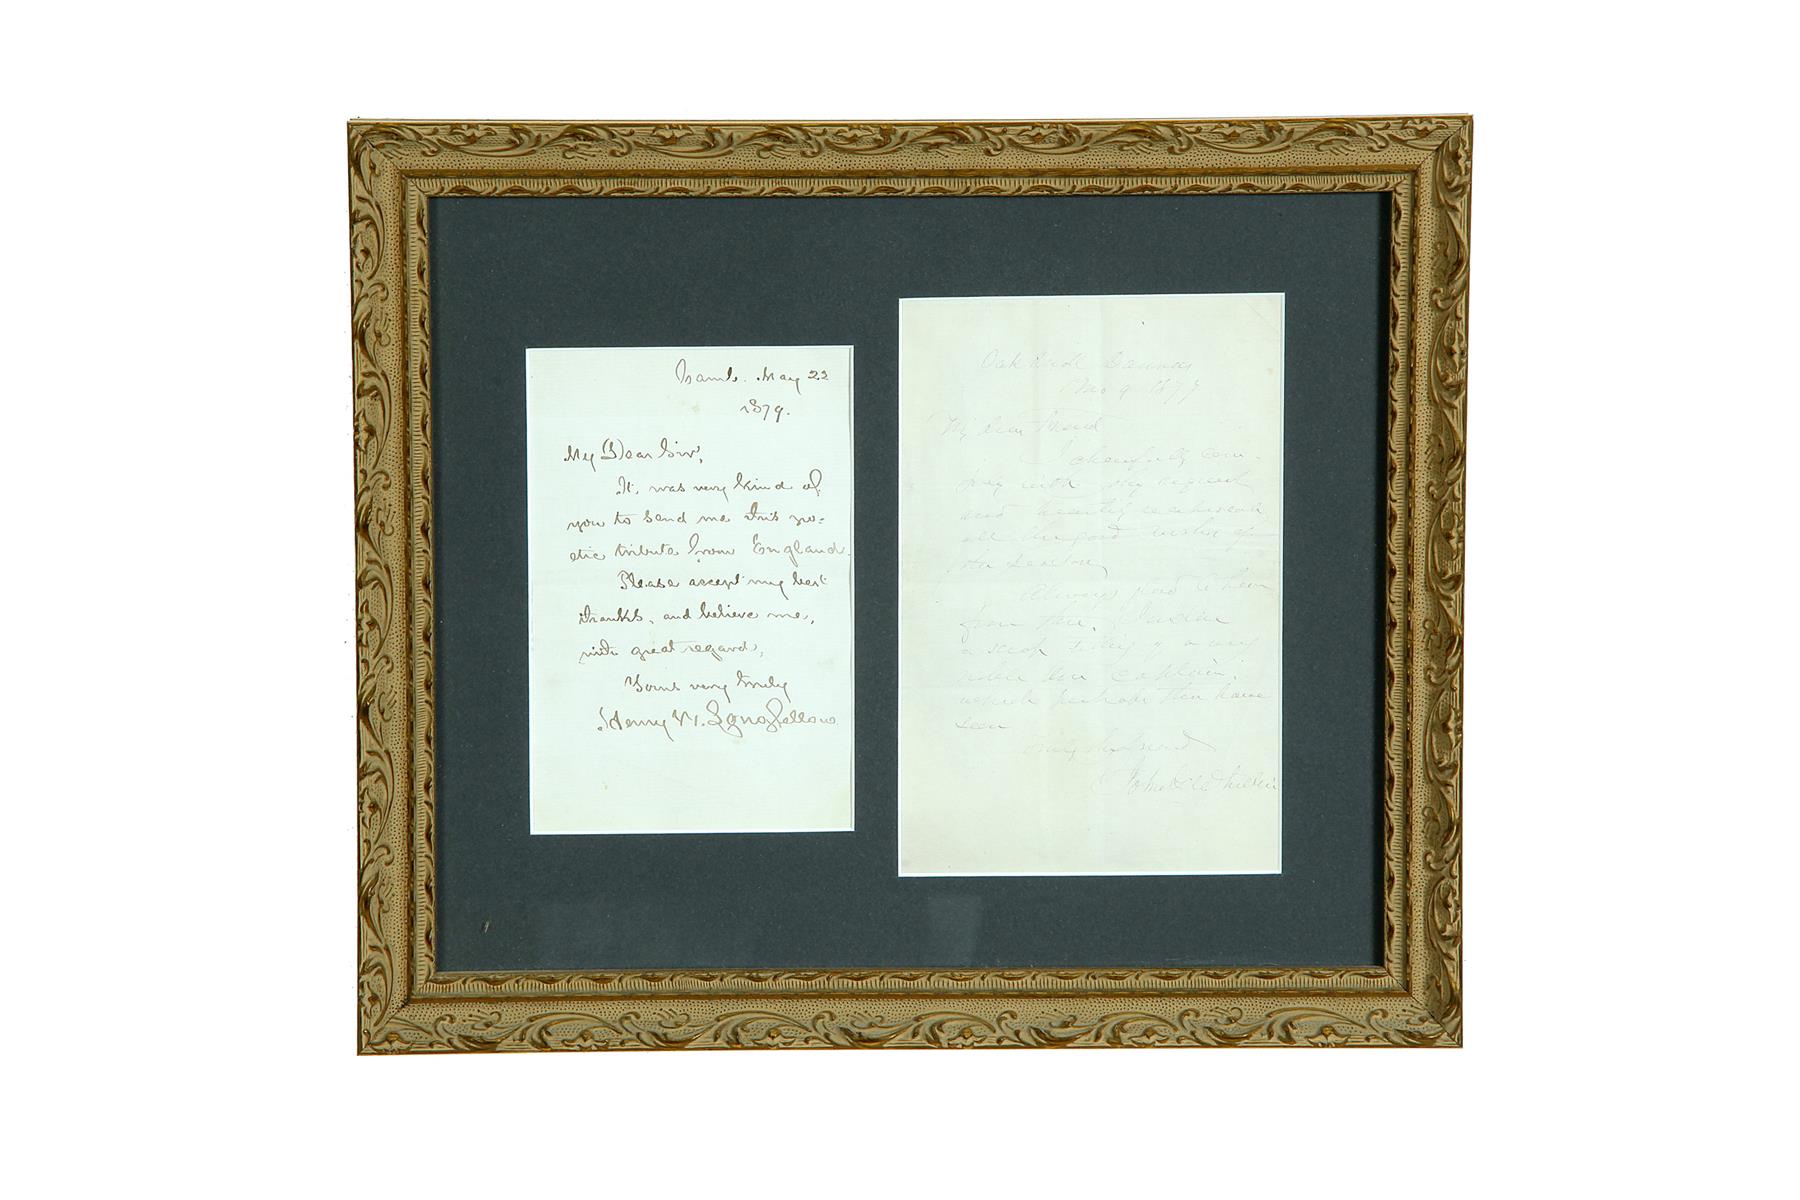 Camb. May 22
1879.
My Dear Sir,
It was very kind of
you to send me this po=
etic tribute from England.
Please accept my best
thanks, and believe me,
with great regard,
Yours very truly
Henry W. Longfellow
Oak Knoll Danvers
Mo 9 1877
My dear Friend
I cheerfully com-
ply with thy request
and heartily reciprocate
all the good wishes of
Always glad to hear
from thee.
a scrap
which perhaps thou have
seen
Truly thy friend
John G. Whittier